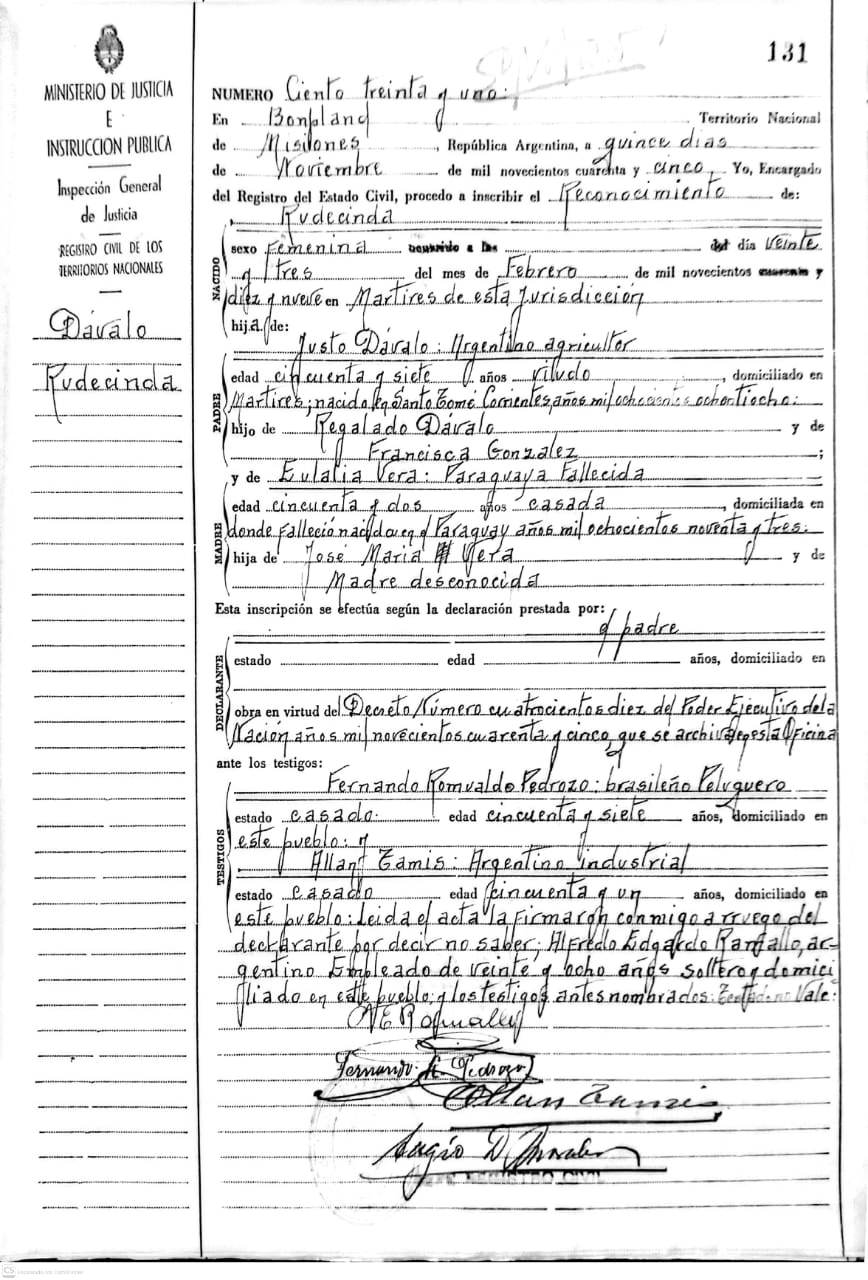 131
MINISTERIO DE JUSTICIA
E
INSTRUCCION PUBLICA
Inspección General
de Justicia
REGISTRO CIVIL DE LOS
TERRITORIOS NACIONALES
Dávalo
Rudecinda
NUMERO Ciento treinta y uno:
En Bonpland Territorio Nacional
de Misiones, República Argentina, a quince dias
de Noviembre de mil novecientos cuarenta y cinco, Yo, Encargado
del Registro del Estado Civil, procedo a inscribir el Reconocimiento de:
Rudecinda
NACIDO
sexo Femenina ocurrido a las del día Veinte
y tres del mes de Febrero de mil novecientos cuarenta y
diez y nueve en Martires de esta Jurisdicción
hija de:
Justo Dávalo: Argentino agricultor
PADRE
edad cincuenta y siete años viudo, domiciliado en
Martires; nacido en Santo Tomé Corrientes, años mil ochocientos ochentiocho:
hijo de Regalado Dávalo y de
Francisca Gonzalez;
y de Eulalia Vera: Paraguaya Fallecida
MADRE
edad cincuenta y dos años casada, domiciliada en
donde Falleció nacida en el Paraguay años mil ochocientos noventa y tres:
hija de José Maria Vera y de
Madre desconocida
Esta inscripción se efectúa según la declaración prestada por:
el padre
DECLARANTE
estado edad años, domiciliado en
obra en virtud del Decreto Número cuatrocientos diez del Poder Ejecutivo de la
Nación años mil novecientos cuarenta y cinco, que se archiva en esta Oficina
ante los testigos:
TESTIGOS
Fernando Romualdo Pedrozo: brasileño Peluquero
estado casado: edad cincuenta y siete años, domiciliado en
este pueblo: y
Allan Tamis: Argentino industrial
estado Casado edad cincuenta y un años, domiciliado en
este pueblo: Leida el acta la Firmaron conmigo a rruego del
declarante por decir no saber; Alfredo Edgardo ar-
gentino Empleado de veinte y ocho años soltero y domici
liado en este pueblo; y los testigos antes nombrados: Vale:
Fernando R. Pedrozo
Allan Tamis
REGISTRO CIVIL
CS